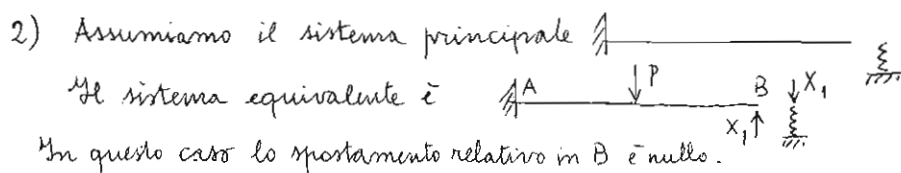 2) Assumiamo il sistema principale
Il sistema equivalente è A P B X₁ X₁
In questo caso lo spostamento relativo in B è nullo.